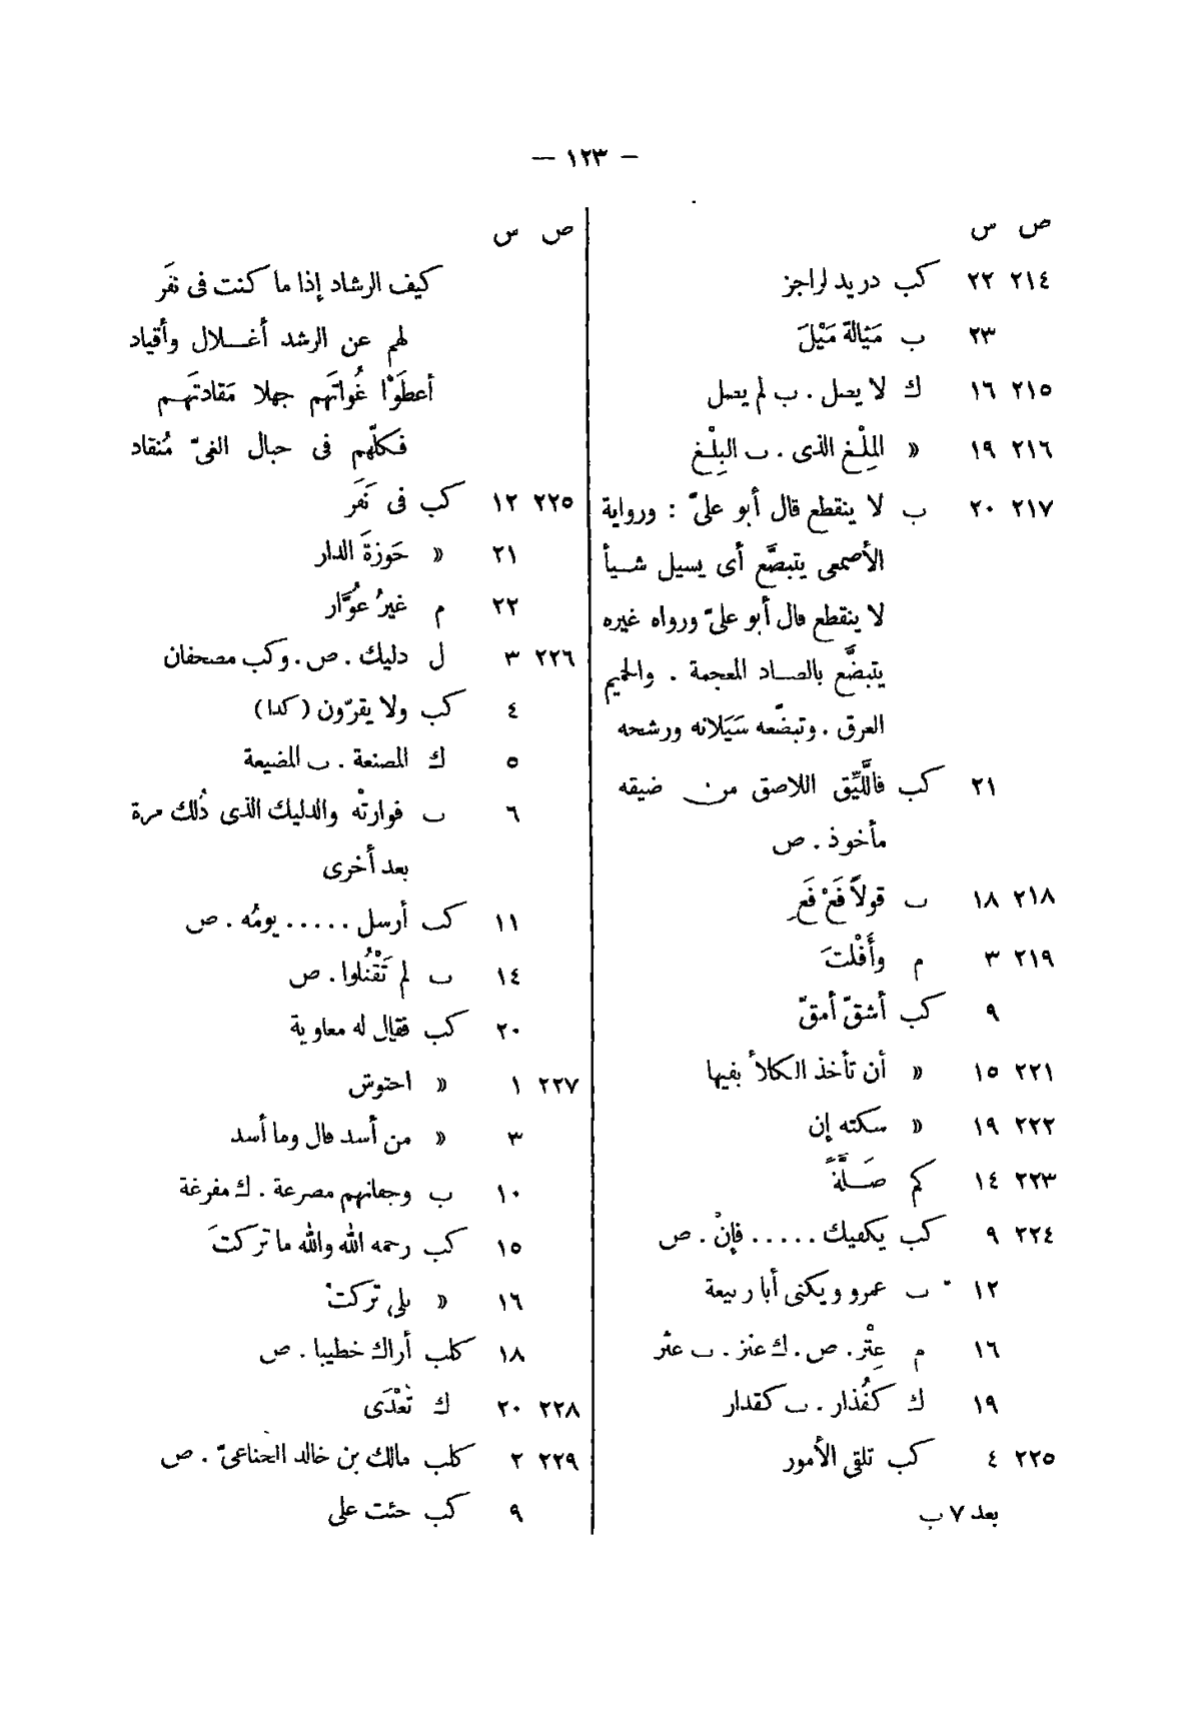 — ١٢٣ —
ص س
٢١٤ ٢٢ كب دريد لراجز
٢٣ ب مَثالة مَيْلَ
٢١٥ ١٦ ك لا يصل . ب لم يصل
٢١٦ ١٩ « المِلْغ الذى . ب البِلْغ
٢١٧ ٢٠ ب لا ينقطع قال أبو علىّ : ورواية
الأصمعى يتبصَّع أى يسيل شيأ
لا ينقطع قال أبو علىّ ورواه غيره
يتبضَّع بالضاد المعجمة . والحميم
العرق . وتبضّعه سَيَلانه ورشحه
٢١ كب فالَّليِّق اللاصق من ضيقه
مأخوذ . ص
٢١٨ ١٨ ب قولاً فَعْ فَعِ
٢١٩ ٣ م وأَفْلتَ
٩ كب أشقّ أمقّ
٢٢١ ١٥ « أن تأخذ الكلأ بفيها
٢٢٢ ١٩ « سكته إن
٢٢٣ ١٤ كم صَلَّةً
٢٢٤ ٩ كب يكفيك ..... فإنْ . ص
١٢ ب عمرو ويكنى أبا ربيعة
١٦ م عِتْر . ص . ك عنز . ب عثر
١٩ ك كفُذار . ب كقدار
٢٢٥ ٤ كب تلقى الأمور
بعد ٧ ب
ص س
كيف الرشاد إذا ما كنت فى نفَر
لهم عن الرشد أغلال وأقياد
أعطَوْا غُواتَهم جهلا مَقادتَهم
فكلّهم فى حبال الغىّ مُنقاد
٢٢٥ ١٢ كب فى نَفَر
٢١ « حَوزةَ الدار
٢٢ م غيرُ عُوَّار
٢٢٦ ٣ ل دليك . ص . وكب مصحفان
٤ كب ولا يقرّون (كدا)
٥ ك المصنعة . ب المضيعة
٦ ب فوارتْه والدليك الذى دُلك مرة
بعد أخرى
١١ كب أرسل ..... يومُه . ص
١٤ ب لم تَقْتُلوا . ص
٢٠ كب فقال له معاوية
٢٢٧ ١ « احتوش
٣ « من أسد قال وما أسد
١٠ ب وجفانهم مصرعة . ك مفرغة
١٥ كب رحمه الله والله ما تركتَ
١٦ « بلى تركتْ
١٨ كلب أراك خطيبا . ص
٢٢٨ ٢٠ ك تُعْدَى
٢٢٩ ٢ كلب مالك بن خالد الخناعىّ . ص
٩ كب حئت على